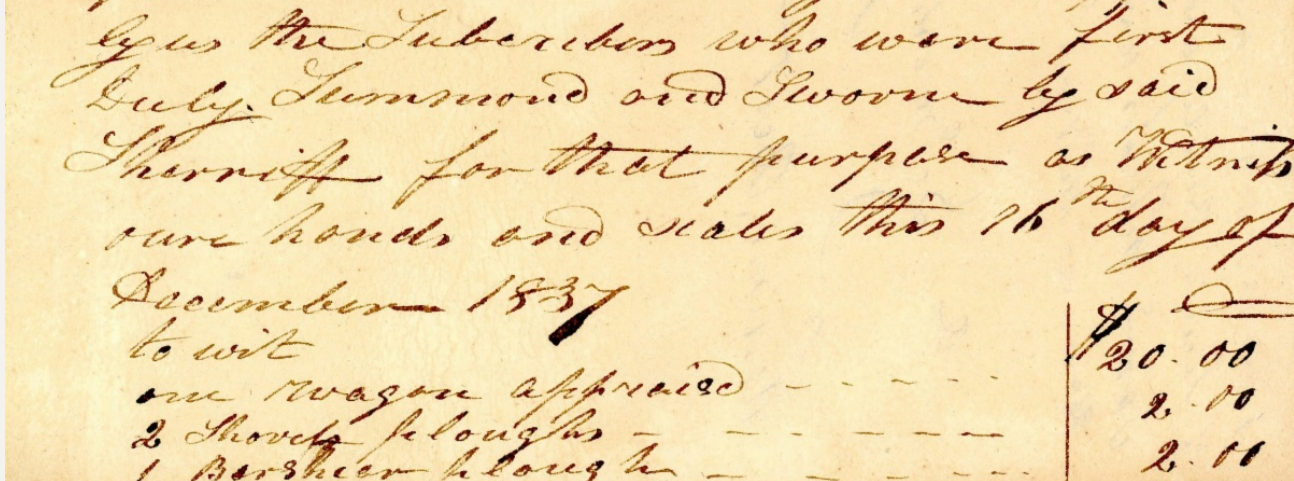 by us the Subscribers who were first
Duly. Summond and Sworne by said
Sherriff for that purpose as Witness
oure hands and seales this 16th day of
December 1837
to wit $
one wagon appraisd - - - - - 20.00
2 Shovel ploughs - - - - - - 2.00
1 Barshier plough - - - - - 2.00